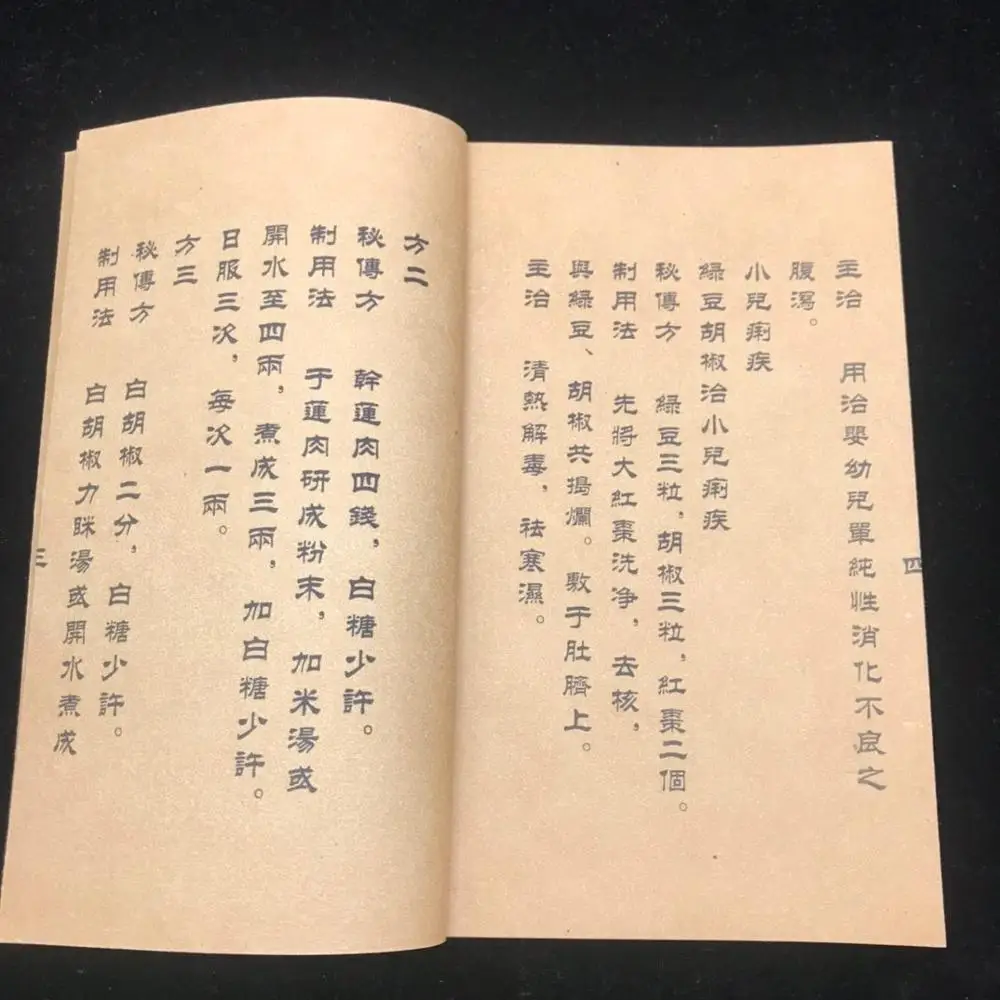 主治　用治嬰幼兒單純性消化不良之
腹瀉。
小兒痢疾
綠豆胡椒治小兒痢疾
秘傳方　綠豆三粒，胡椒三粒，紅棗二個。
制用法　先將大紅棗洗净，去核，
與綠豆、胡椒共搗爛。敷于肚臍上。
主治　清熱解毒，祛寒濕。
四
方二
秘傳方　幹蓮肉四錢，白糖少許。
制用法　于蓮肉研成粉末，加米湯或
開水至四兩，煮成三兩，加白糖少許。
日服三次，每次一兩。
方三
秘傳方　白胡椒二分，白糖少許。
制用法　白胡椒力眯湯或開水煮成
三